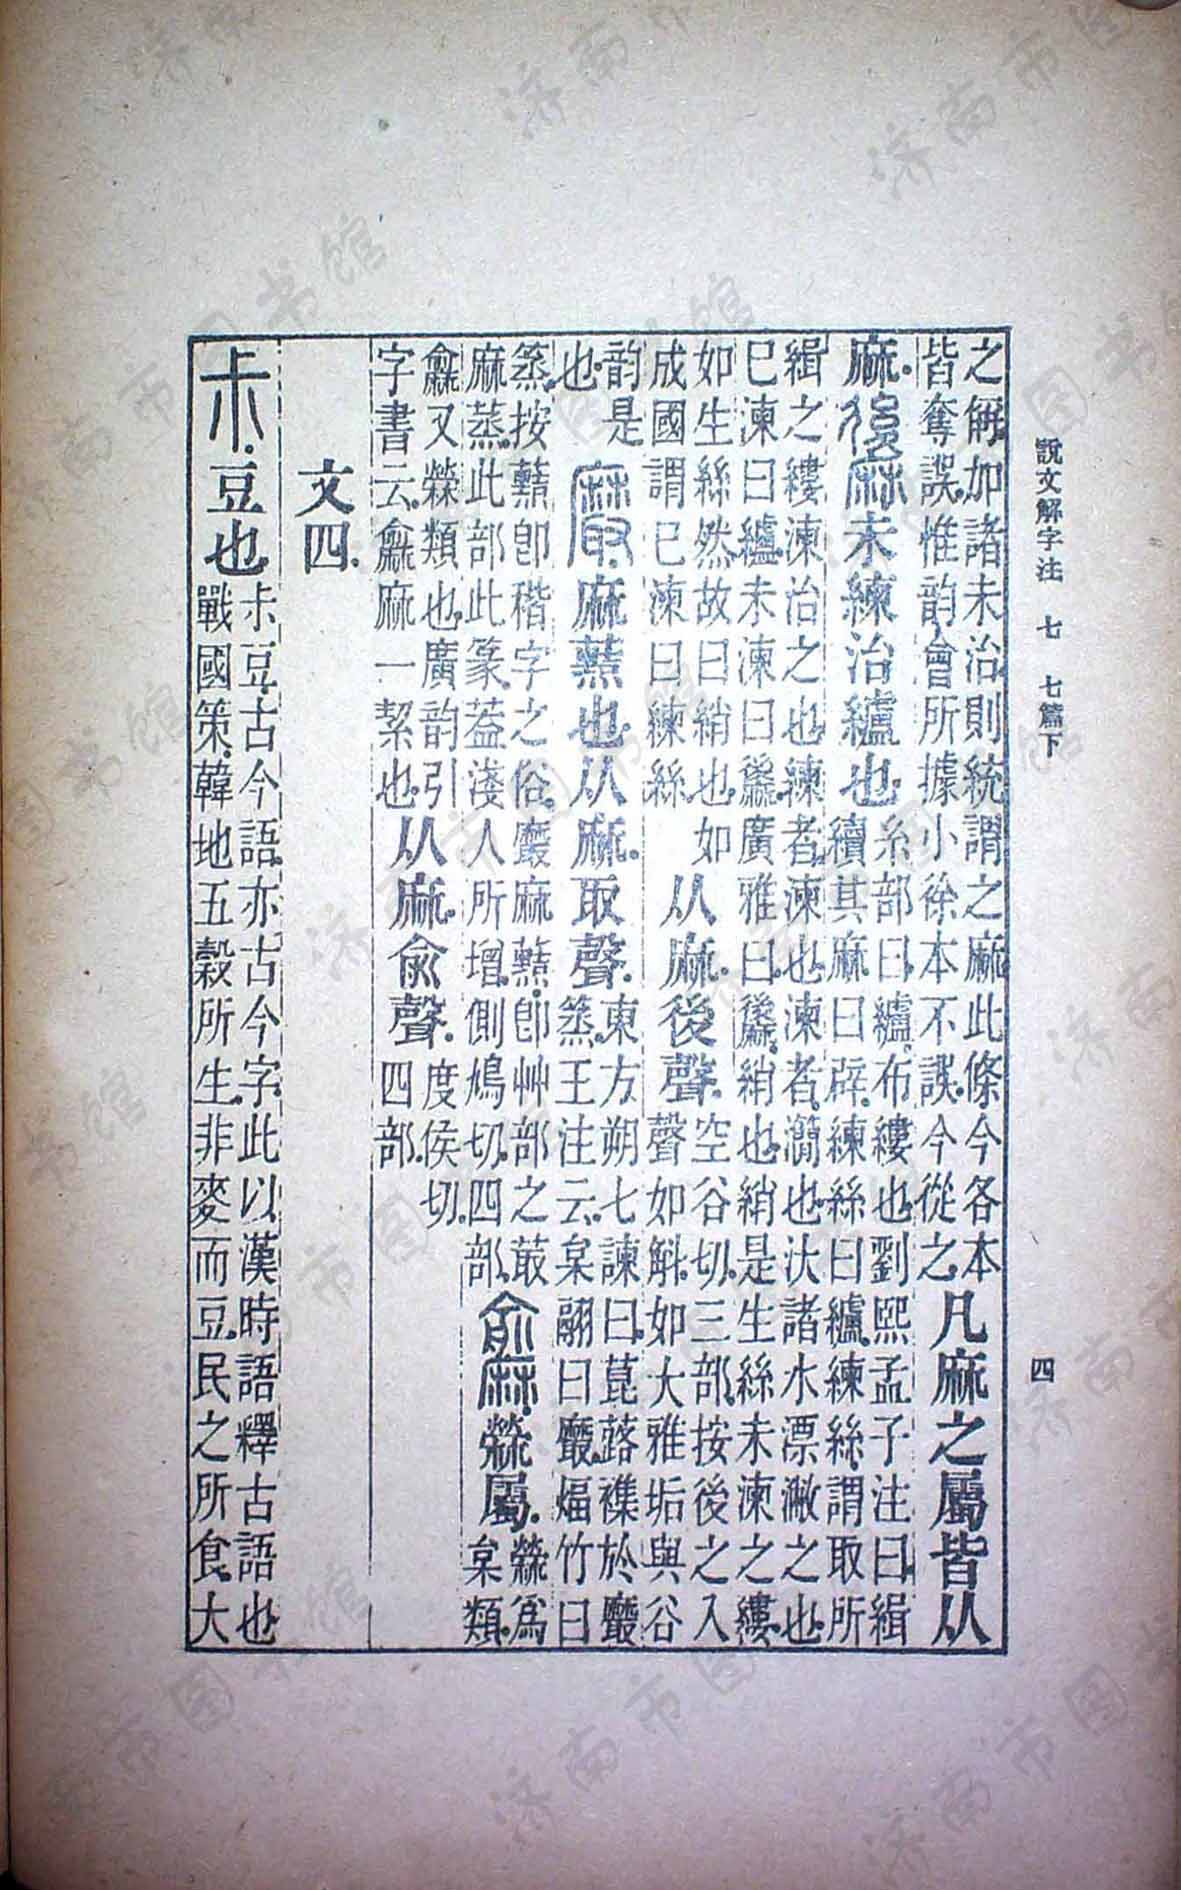 說文解字注 七 七篇下
四
之偁加諸未治則統謂之麻此條今各本
皆奪誤惟韵會所據小徐本不誤今從之
凡麻之屬皆从
麻未練治纑也
糸部曰纑布縷也劉熙孟子注曰緝
續其麻曰辟練絲曰纑練絲謂取所
緝之縷湅治之也練者湅也湅者㶕也汏諸水漂潎之也
已湅曰纑未湅曰廣雅曰綃也綃是生絲未湅之縷
如生絲然故曰綃也如
成國謂已湅曰練絲
从麻後聲
空谷切三部按後之入
聲如斛如大雅垢與谷
韵是
也
黀麻䕸也从麻取聲
東方朔七諫曰菎蕗襍於黀
蒸王注云枲翮曰黀煏竹曰
蒸按䕸卽稭字之俗黀麻䕸卽艸部之菆
麻蒸此部此篆葢淺人所增側鳩切四部
檾屬
檾爲
枲類
又檾類也廣韵引
字書云麻一絜也
从麻兪聲
度侯切
四部
文四
尗豆也
尗豆古今語亦古今字此以漢時語釋古語也
戰國策韓地五穀所生非麥而豆民之所食大